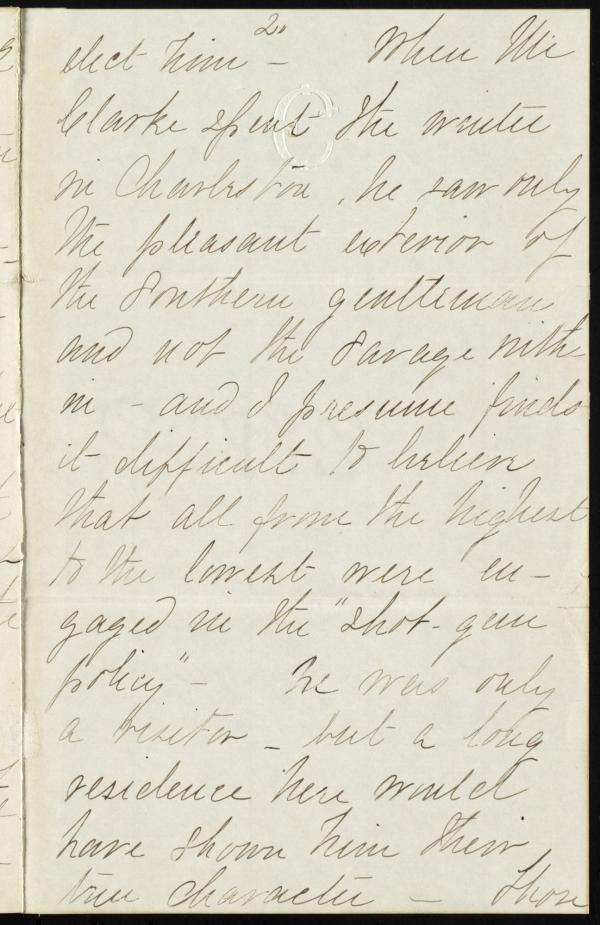 2"
elect him - When Mr
Clarke spent the winter
in Charleston, he saw only
the pleasant exterior of
the Southern gentleman
and not the savage with-
in - and I presume finds
it difficult to believe
that all from the highest
to the lowest were en-
gaged in the "shot-gun
policy" - he was only
a visitor - but a long
residence here would
have shown him their
true character - Those